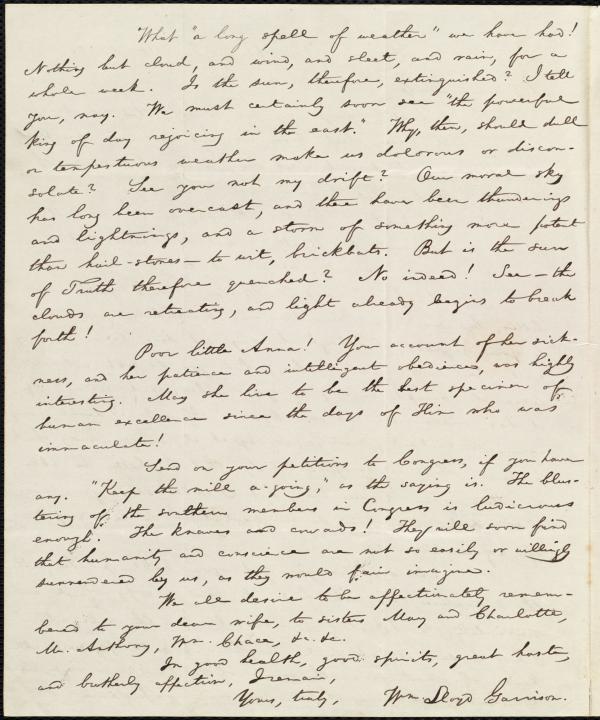 What "a long spell of weather" we have had!
Nothing but cloud, and wind, and sleet, and rain, for a
whole week. Is the sun, therefore, extinguished? I tell
you, nay. We must certainly soon see "the powerful
king of day rejoicing in the east." Why, then, should dull
or tempestuous weather make us dolorous or discon-
solate? See you not my drift? Our moral sky
has long been overcast, and there have been thunderings
and lightnings, and a storm of something more potent
than hail-stones—to wit, brickbats. But is the sun
of Truth therefore quenched? No indeed! See—the
clouds are retreating, and light already begins to break
forth!
Poor little Anna! Your account of her sick-
ness, and her patience and intelligent obedience, was highly
interesting. May she live to be the best specimen of
human excellence since the days of Him who was
immaculate!
Send on your petitions to Congress, if you have
any. "Keep the mill a-going," as the saying is. The blus-
tering of the southern members in Congress is ludicrous
enough. The knaves and cowards! They will soon find
that humanity and conscience are not so easily or willingly
surrendered by us, as they would fain imagine.
We all desire to be affectionately remem-
bered to your dear wife, to sisters Mary and Charlotte,
Mr. Anthony, Wm. Chace, &c. &c.
In good health, good spirits, great haste,
and brotherly affection, I remain,
Yours, truly, Wm. Lloyd Garrison.